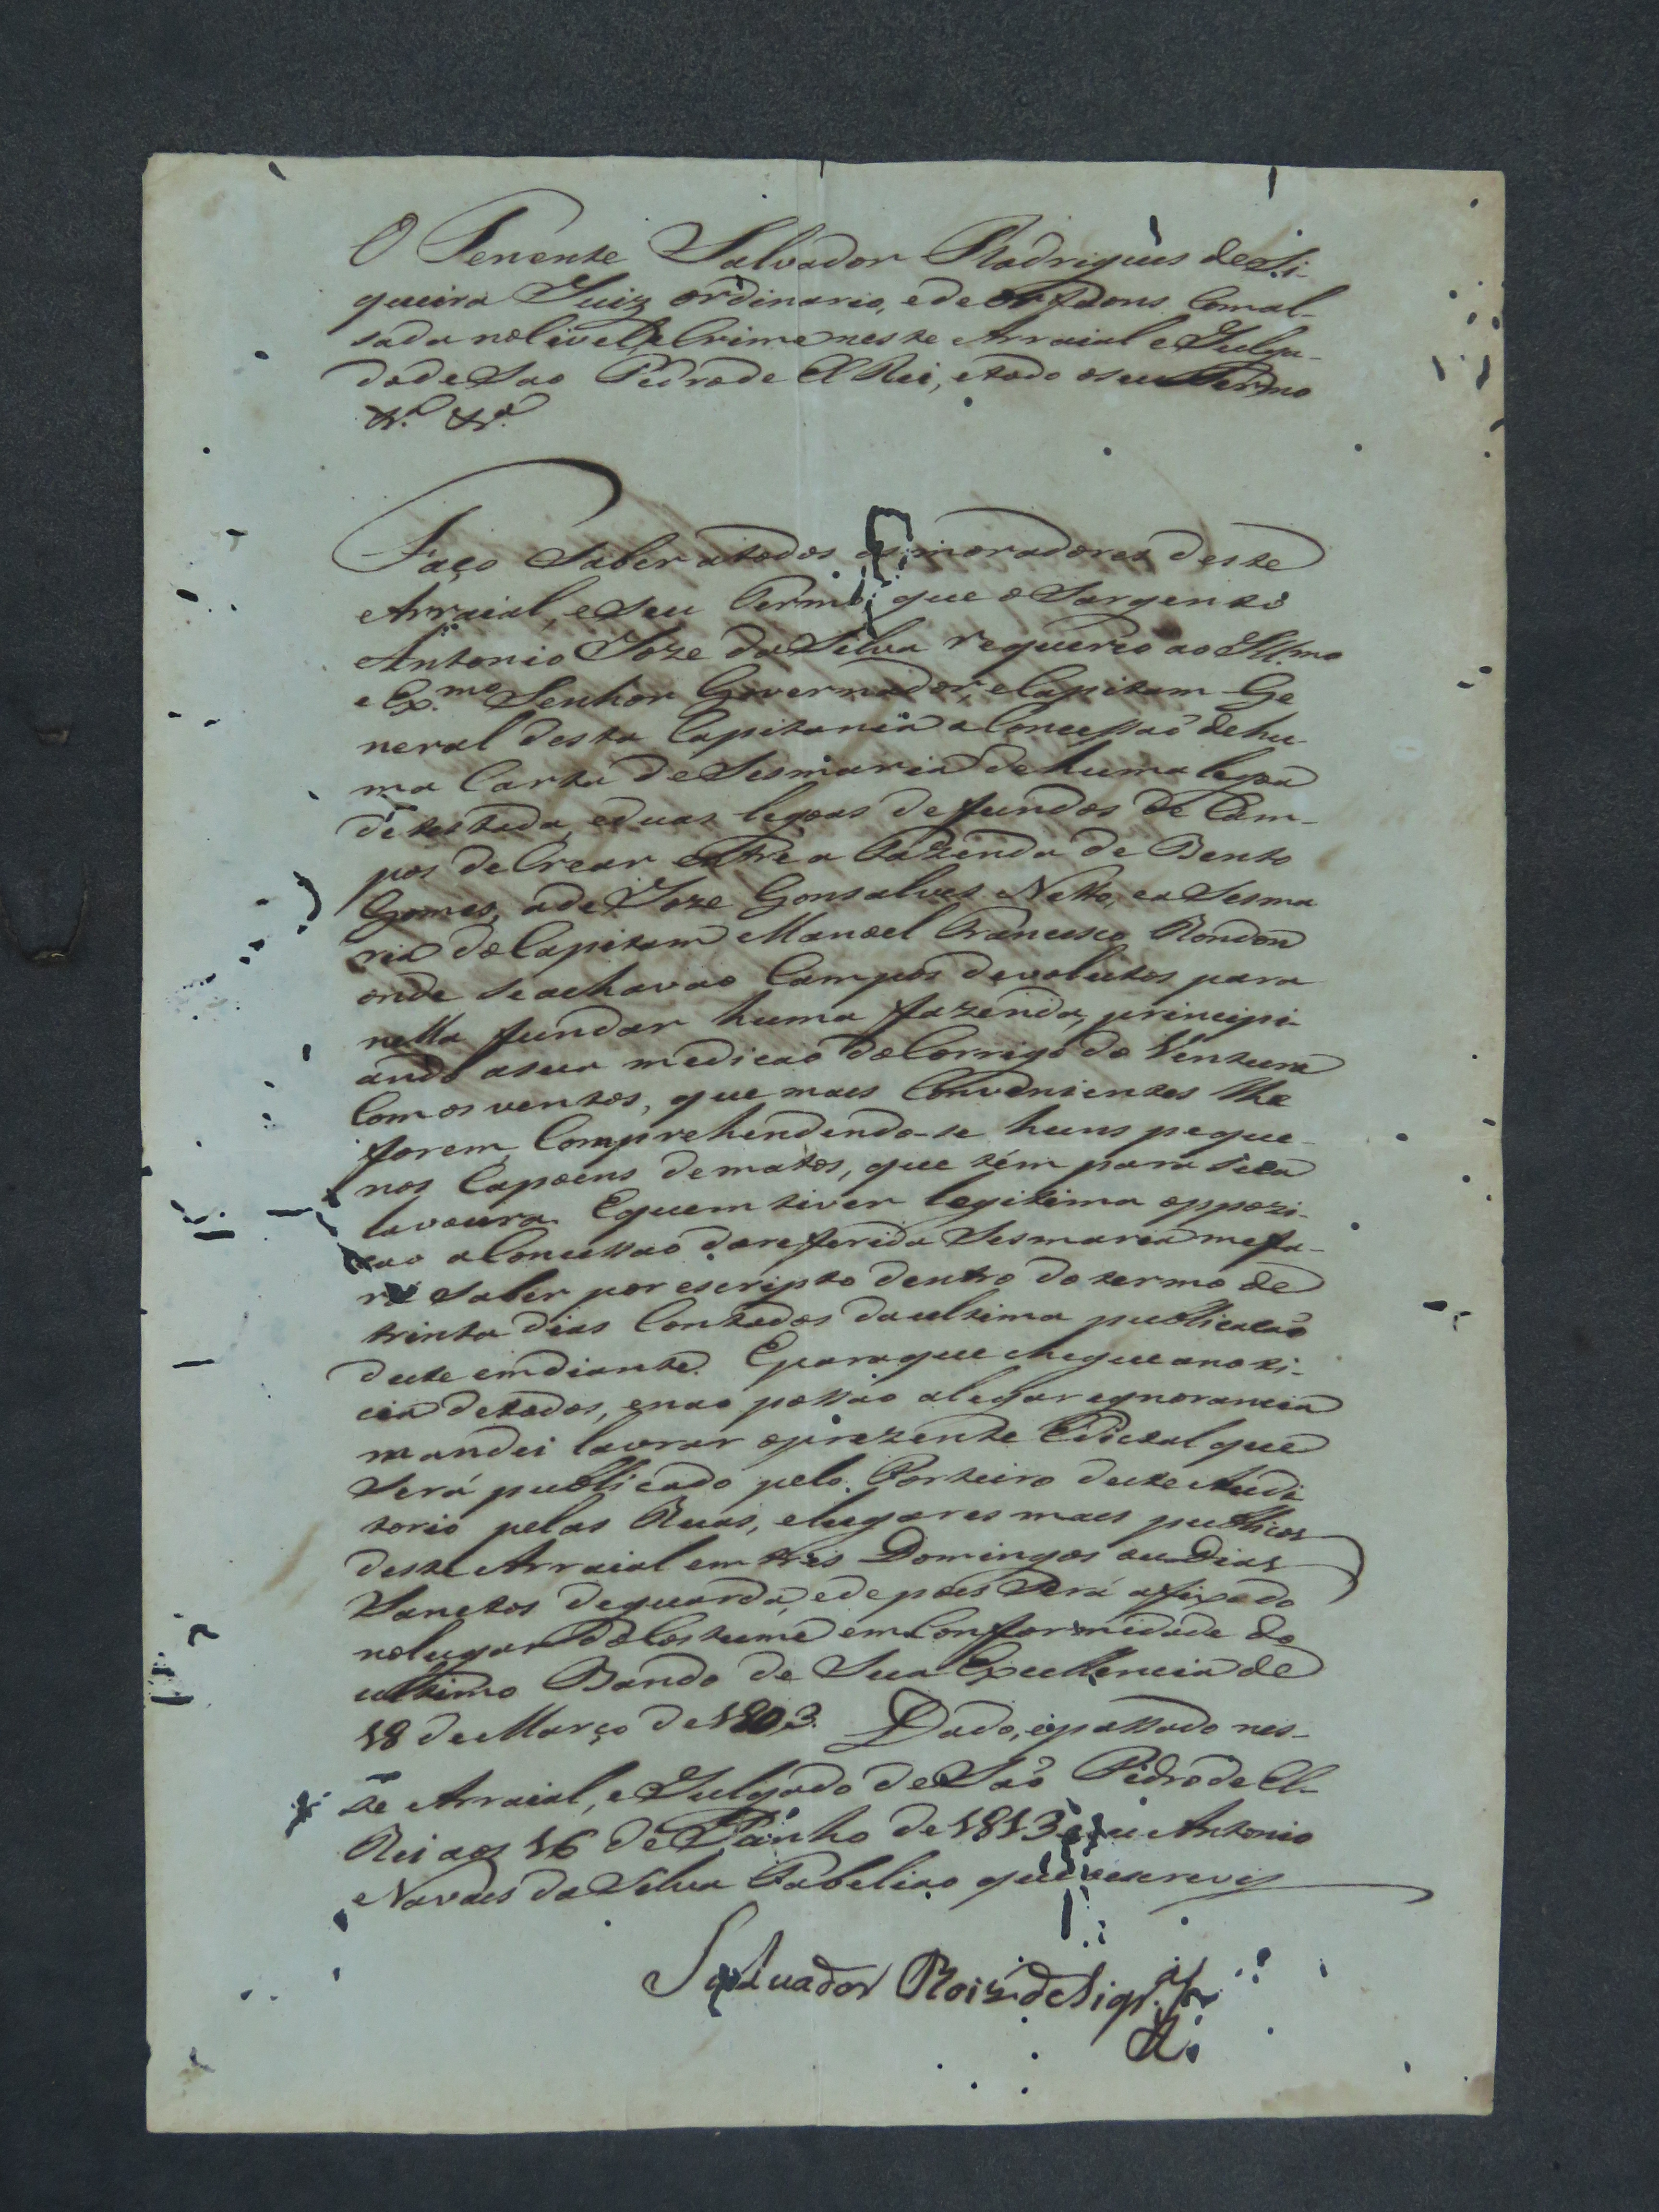 O Tenente Salvador Rodrigues de Si-
queira Juiz ordinario, e de orfaons Com al-
sada no Civel, e Crime neste Arraial e Julga-
do de Sao Pedro de El Rei, e todo o seu Termo
&.ª &.ª
Faço Saber a todos os moradores deste
Arraial, e seu Termo, que o Sargento
Antonio Joze da Silva requereo ao Ill.mo
e Ex.mo Senhor Governador, e Capitam Ge
neral desta Capitania a Concessaõ de hu
ma Carta de Sesmaria de huma legoa
de testada, e duas legoas de fundos de Cam-
pos de Crear entre a Fazenda de Bento
Gomes, a de Joze Gonsalves Netto, e a Sesma
ria do Capitam Manoel Francisco Rondon
onde se achavao Campos devolutos para
nella fundar huma fazenda, principi-
ando a sua medicaõ do Corrigo do Ventura
Com os ventos, que mais Convenientes lhe
forem, Comprehendendo-se huns peque-
nos Capoens de matos, que tem para sua
lavoura. E quem tiver legitima oppozi-
cao a Concessaõ da referida Sesmaria me fa-
rá saber por escripto dentro do termo de
trinta dias Contados da ultima publicacaõ
deste em diante. E para que chegue a noti-
cia de todos, e nao possao alegar egnorancia
mandei lavrar o prezente Edictal que
Será publicado pelo Porteiro deste Audi
torio pelas Ruas, e lugares mais publicos
deste Arraial em tres Domingos ou Dias
Sanctos de guarda, e depois Será afixado
no lugar do Costume em Conformidade do
ultimo Bando de Sua Excellencia de
18 de Março de 1803. Dado, e passado nes-
te Arraial, e Julgado de Saõ Pedro de El-
Rei aos 16 de Junho de 1813 e eu Antonio
Navaes da Silva Tabeliao que o escrevy
Salvador Roiz de Siqr.ª